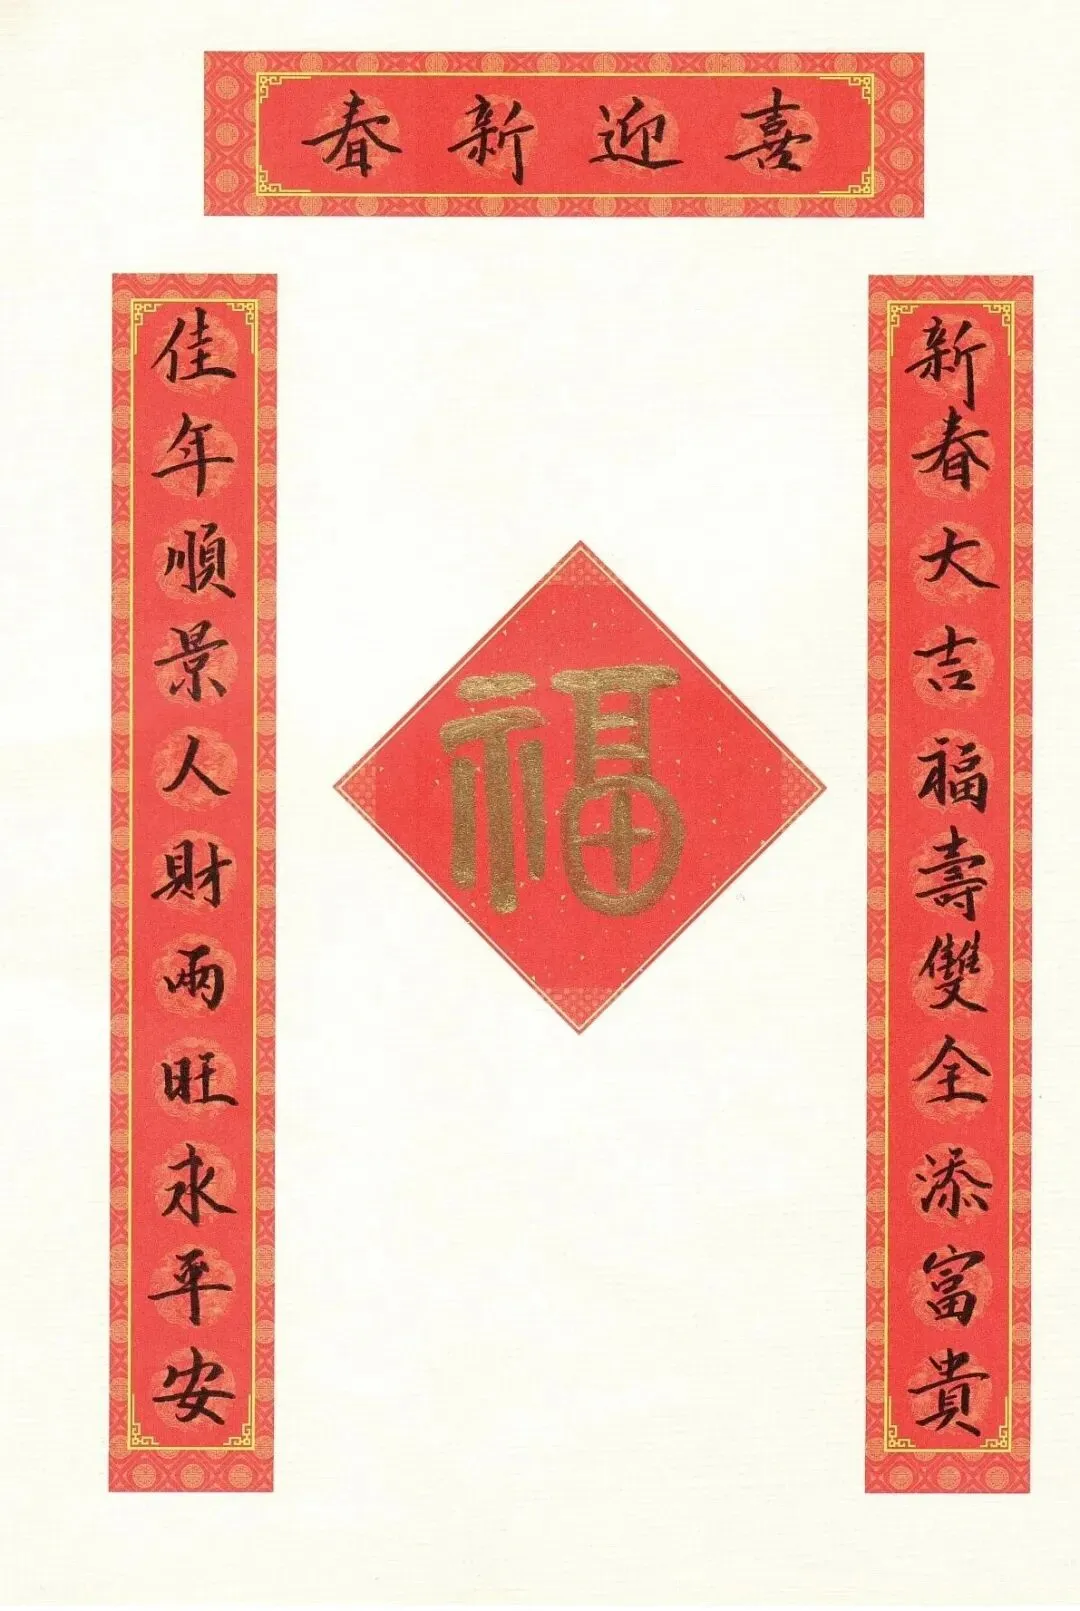 喜迎新春
新春大吉福壽雙全添富貴
佳年順景人財兩旺永平安
福